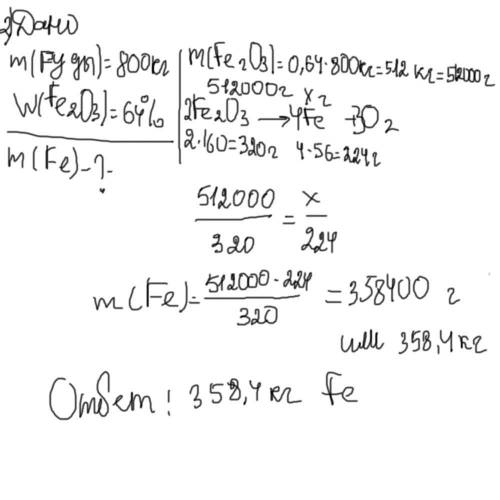 2) Дано
m(Руды) = 800кг
W(Fe₂O₃) = 64%
m(Fe) - ?
m(Fe₂O₃) = 0,64·800кг = 512 кг = 512000г
512000г x г
2Fe₂O₃ → 4Fe + 3O₂
2·160=320г 4·56=224г
512000/320 = x/224
m(Fe) = 512000·224/320 = 358400 г
или 358,4кг
Ответ: 358,4кг Fe